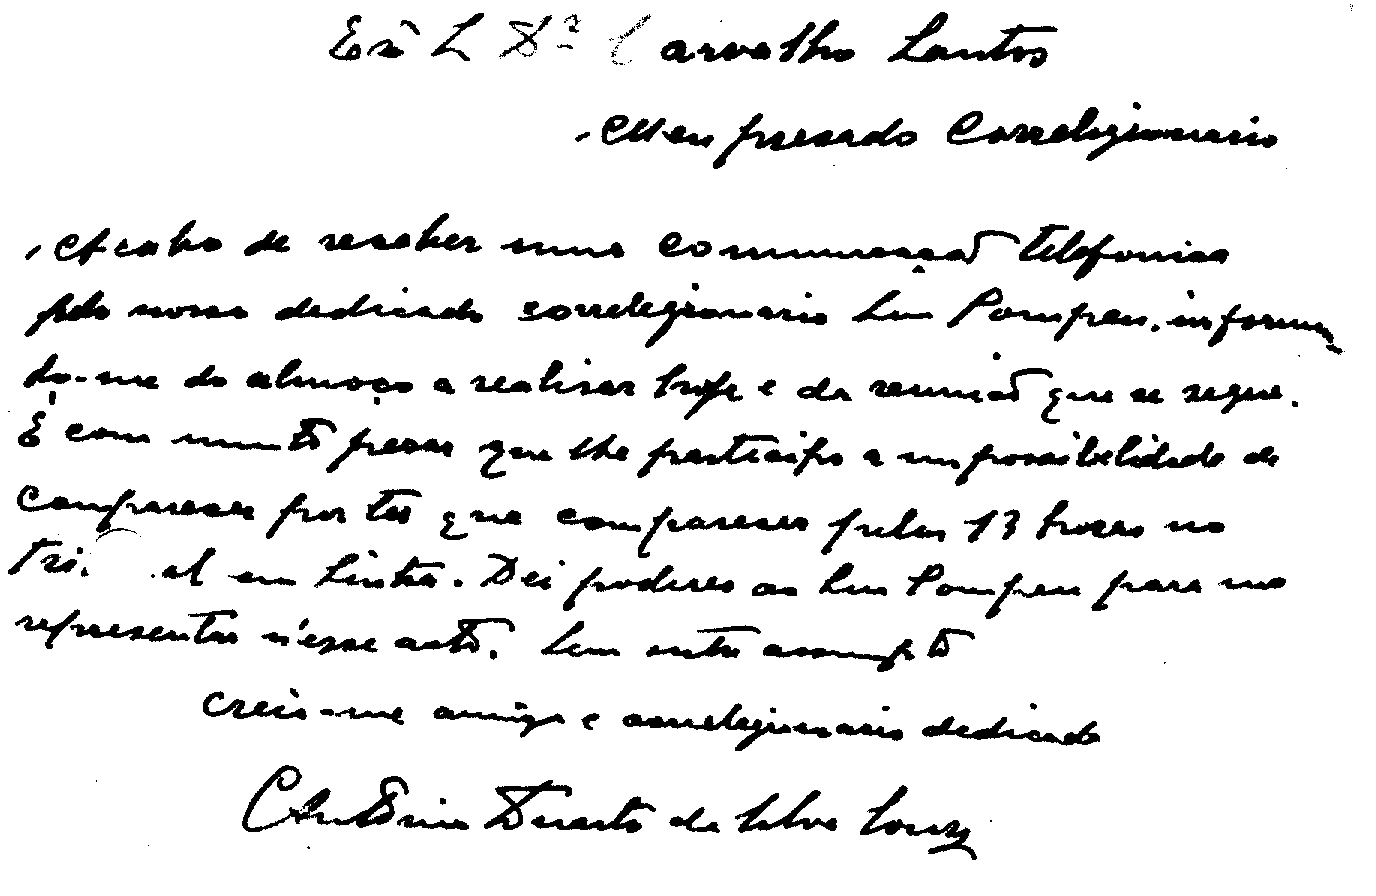 Exmo Sr. Dr. Carvalho Santos
Meu presado Correligionario
Acabo de receber uma communicação telefonica
pelo nosso dedicado correlegionario Luis Pompeu, informan
do-me do almoço a realisar hoje e da reunião que se segue.
É com muito pesar que lhe participo a impossibelidade de
comparecer por ter que comparecer pelas 13 horas no
tri. al em Sintra. Dei poderes ao Luis Pompeu para me
representar n'esse acto. Sem outro assumpto
creia-me amigo e correlegionario dedicado
Antonio Duarte da Silva